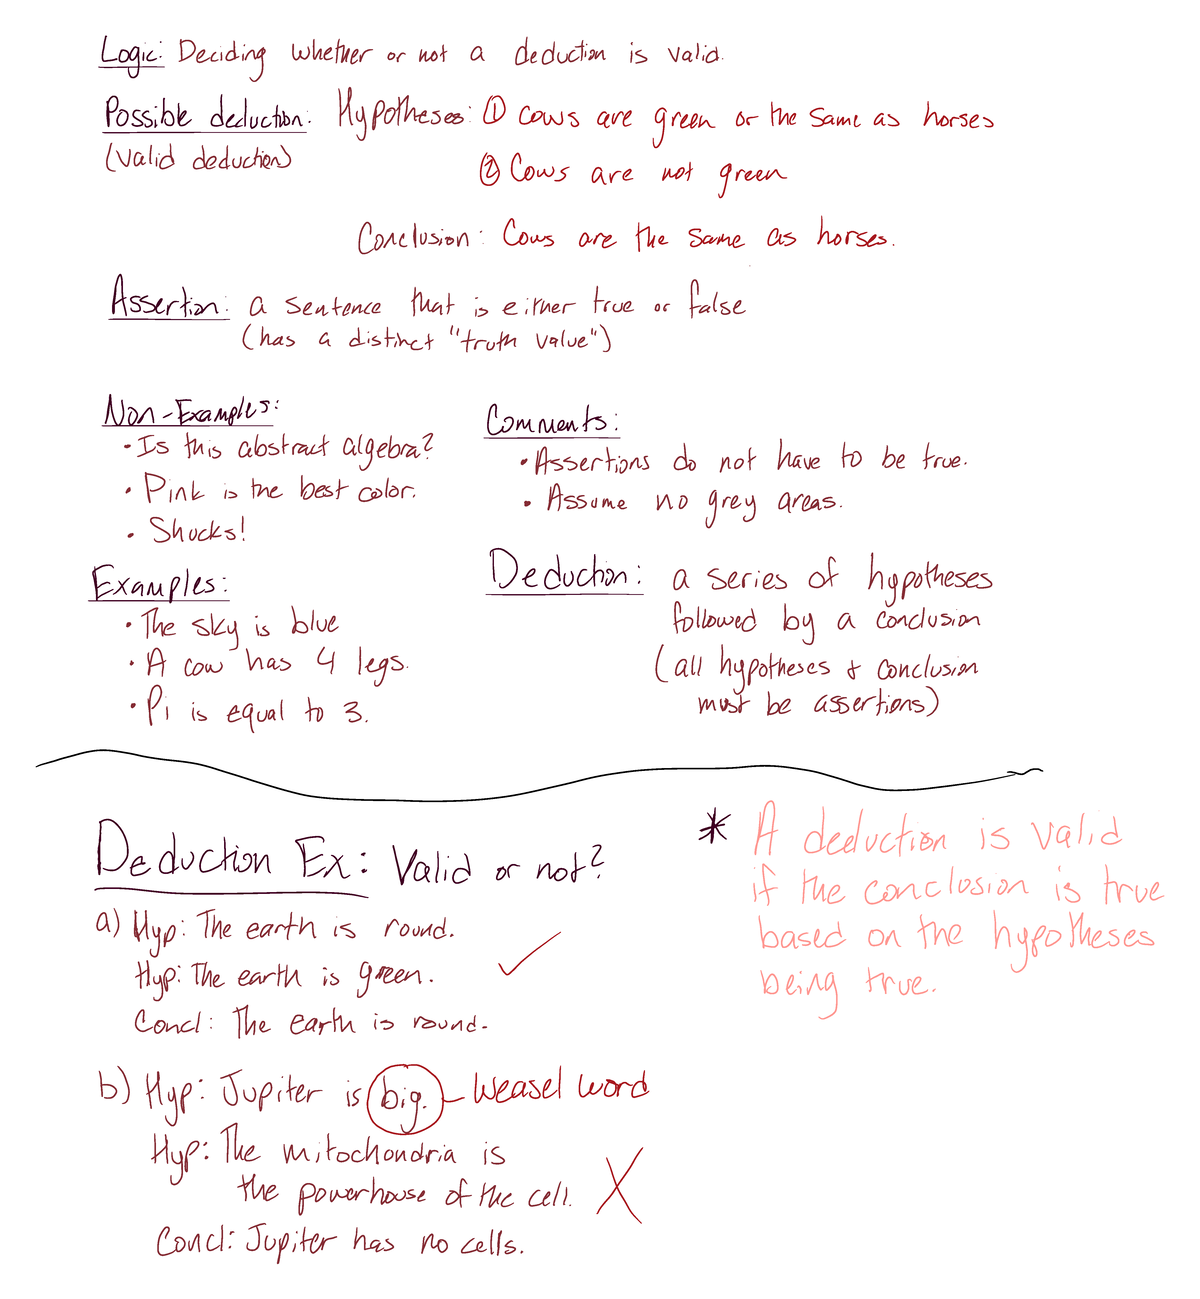 Logic: Deciding whether or not a deduction is valid.
Possible deduction: Hypotheses: ① Cows are green or the same as horses
(valid deduction)
② Cows are not green
Conclusion: Cows are the same as horses.
Assertion: a sentence that is either true or false
(has a distinct "truth value")
Non-Examples:
• Is this abstract algebra?
• Pink is the best color.
• Shucks!
Examples:
• The sky is blue
• A cow has 4 legs.
• Pi is equal to 3.
Comments:
• Assertions do not have to be true.
• Assume no grey areas.
Deduction: a series of hypotheses
followed by a conclusion
(all hypotheses & conclusion
must be assertions)
Deduction Ex: Valid or not?
a) Hyp: The earth is round.
Hyp: The earth is green. ✓
Concl: The earth is round.
b) Hyp: Jupiter is big. - Weasel word
Hyp: The mitochondria is
the powerhouse of the cell. X
Concl: Jupiter has no cells.
* A deduction is valid
if the conclusion is true
based on the hypotheses
being true.